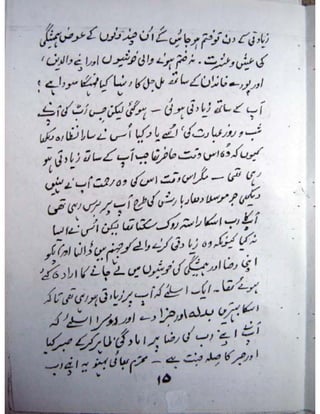 زیادتی کے دن تو ختم ہو جائیں گے اُن چند دنوں کے عوض ہمیشگی
کی عیش و عشرت۔ نہ ختم ہونے والی خوشیوں اور اپنے والدین،
اور پورے خاندان کے ساتھ مل جل کر رہنا کیا مہنگا سودا ہے؟
آپ کے ساتھ زیادتی ہوئی — ہو گئی لیکن جس رب کی آپ نے
شب و روز عبادت کی، اُسے یاد کیا اُس نے سارا نظارہ دیکھا
کیوں کہ وہ اُس وقت حاضر تھا جب آپ کے ساتھ زیادتی ہو
رہی تھی — مگر اس وقت اس کی وہ رحمت آپ نے نہیں
دیکھی جو موسلا دھار بارش کی طرح آپ پر برس رہی تھی
آپکا رب اسکا راستہ روک سکتا تھا لیکن اُس نے ایسا
نہ کیا کیونکہ وہ زیادتی کرنے والے کو جہنم میں ڈالنا اور آپکو
اپنی رضا اور ہمیشگی کی خوشیوں میں لے جانے کا ارادہ کئے
ہوئے تھا۔ ایک اسلئے کہ آپ پر زیادتی ہو رہی تھی تاکہ
اسکا بہترین بدلہ اور جزا دے اور دوسرا اسلئے کہ
آپ نے اپنے رب کی رضا پر آمادگی ظاہر کر کے صبر کیا
اور صبر کا صلہ جنت ہے — محترم بھائی بہنو یہ اپنے رب
۱۵